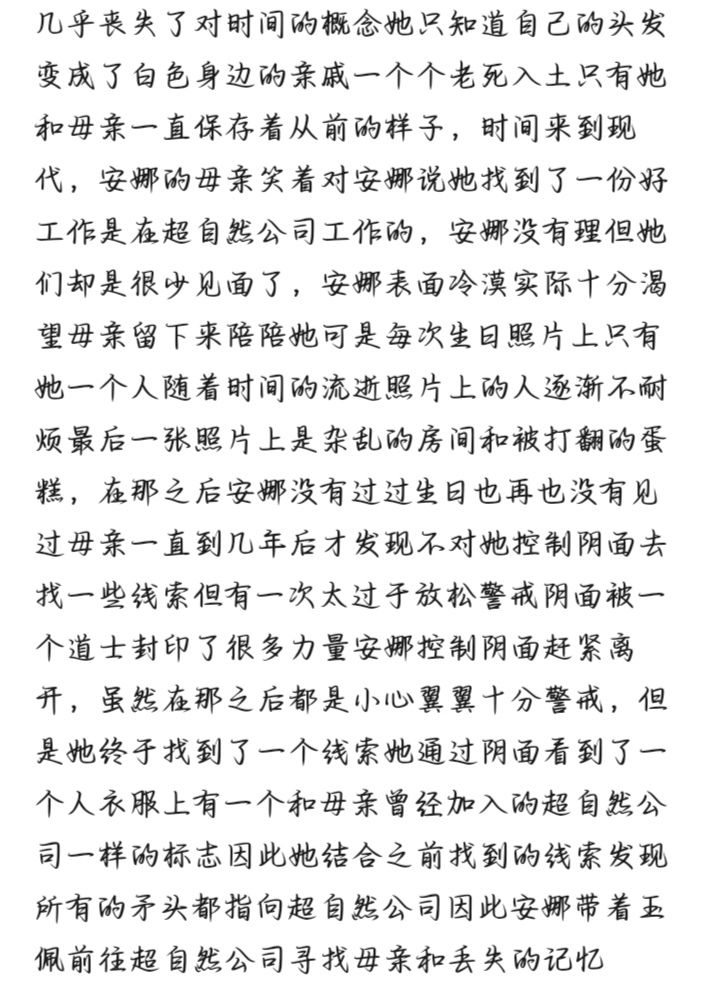 几乎丧失了对时间的概念她只知道自己的头发
变成了白色身边的亲戚一个个老死入土只有她
和母亲一直保存着从前的样子，时间来到现
代，安娜的母亲笑着对安娜说她找到了一份好
工作是在超自然公司工作的，安娜没有理但她
们却是很少见面了，安娜表面冷漠实际十分渴
望母亲留下来陪陪她可是每次生日照片上只有
她一个人随着时间的流逝照片上的人逐渐不耐
烦最后一张照片上是杂乱的房间和被打翻的蛋
糕，在那之后安娜没有过过生日也再也没有见
过母亲一直到几年后才发现不对她控制阴面去
找一些线索但有一次太过于放松警戒阴面被一
个道士封印了很多力量安娜控制阴面赶紧离
开，虽然在那之后都是小心翼翼十分警戒，但
是她终于找到了一个线索她通过阴面看到了一
个人衣服上有一个和母亲曾经加入的超自然公
司一样的标志因此她结合之前找到的线索发现
所有的矛头都指向超自然公司因此安娜带着玉
佩前往超自然公司寻找母亲和丢失的记忆